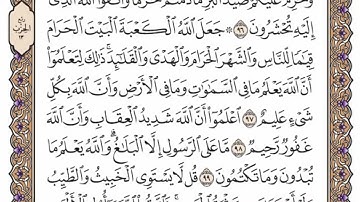 وَحُرِّمَ عَلَيْكُمْ صَيْدُ ٱلْبَرِّ مَا دُمْتُمْ حُرُمًا وَٱتَّقُوا۟ ٱللَّهَ ٱلَّذِىٓ
إِلَيْهِ تُحْشَرُونَ ٩٦ ۞ جَعَلَ ٱللَّهُ ٱلْكَعْبَةَ ٱلْبَيْتَ ٱلْحَرَامَ
قِيَٰمًا لِّلنَّاسِ وَٱلشَّهْرَ ٱلْحَرَامَ وَٱلْهَدْىَ وَٱلْقَلَٰٓئِدَ ذَٰلِكَ لِتَعْلَمُوٓا۟
أَنَّ ٱللَّهَ يَعْلَمُ مَا فِى ٱلسَّمَٰوَٰتِ وَمَا فِى ٱلْأَرْضِ وَأَنَّ ٱللَّهَ بِكُلِّ
شَىْءٍ عَلِيمٌ ٩٧ ٱعْلَمُوٓا۟ أَنَّ ٱللَّهَ شَدِيدُ ٱلْعِقَابِ وَأَنَّ ٱللَّهَ
غَفُورٌ رَّحِيمٌ ٩٨ مَّا عَلَى ٱلرَّسُولِ إِلَّا ٱلْبَلَٰغُ وَٱللَّهُ يَعْلَمُ مَا
تُبْدُونَ وَمَا تَكْتُمُونَ ٩٩ قُل لَّا يَسْتَوِى ٱلْخَبِيثُ وَٱلطَّيِّبُ